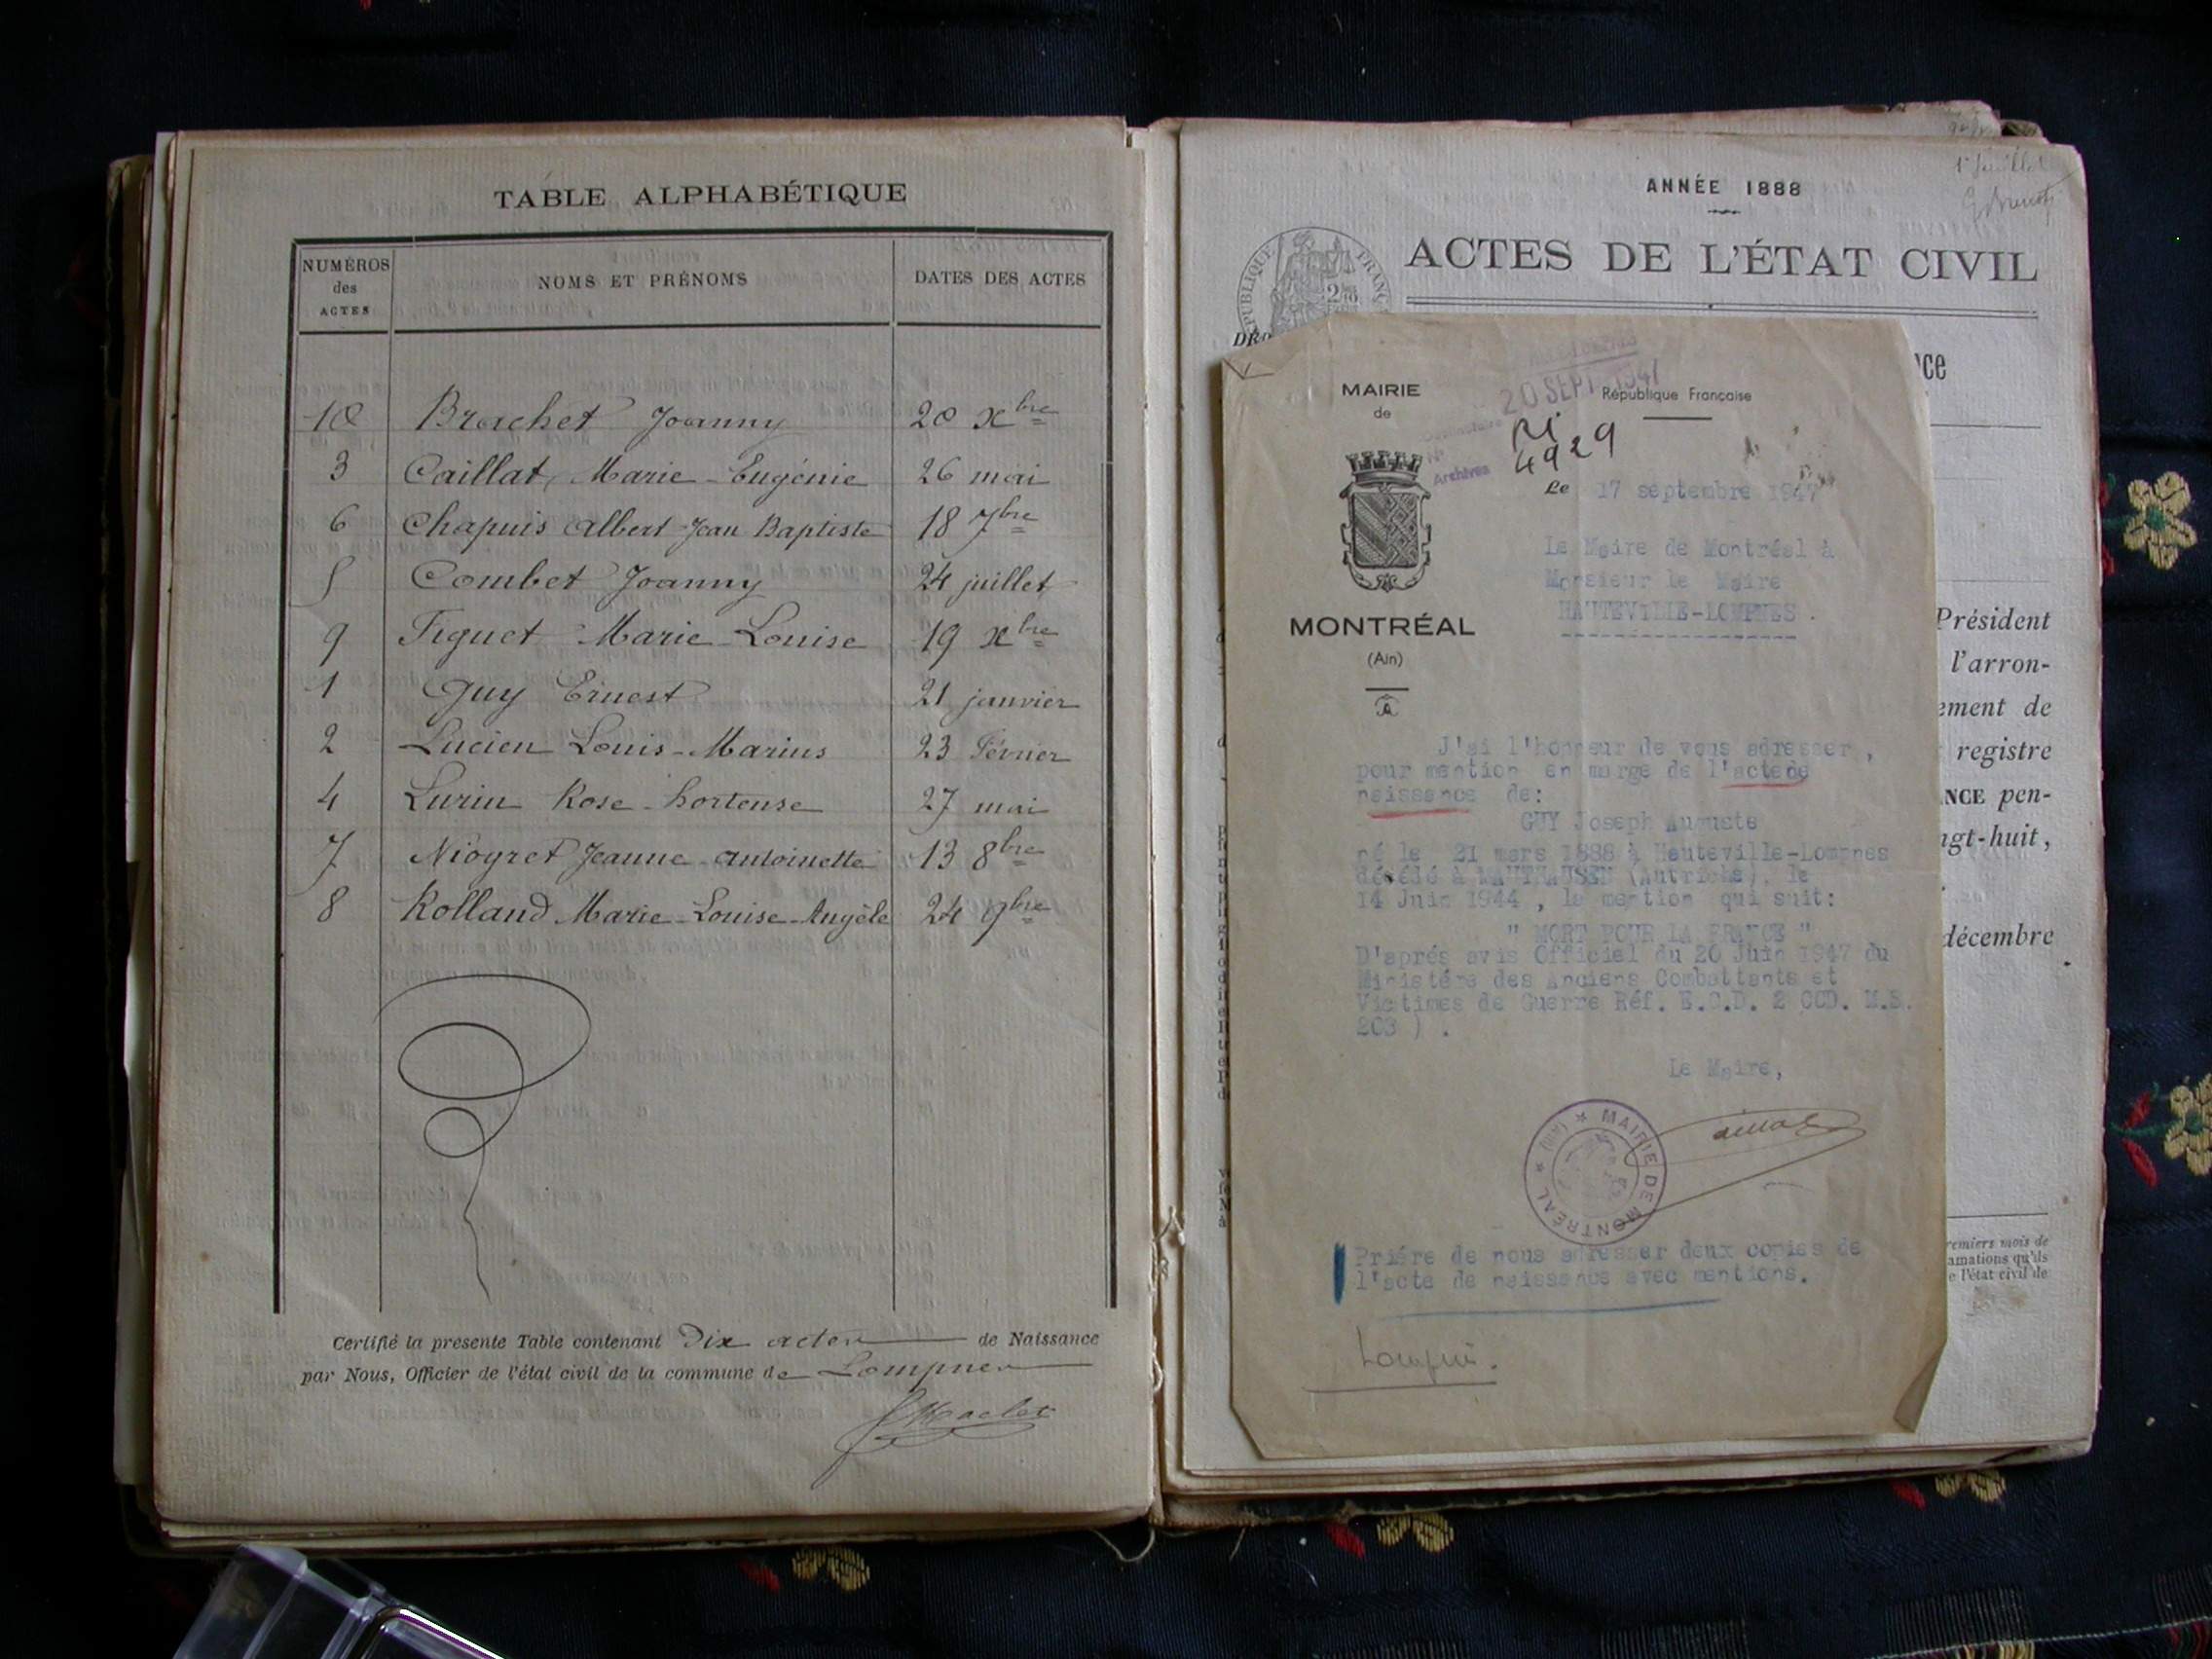 TABLE ALPHABÉTIQUE
NUMÉROS des ACTES
NOMS ET PRÉNOMS
DATES DES ACTES
10 Brachet Joanny 20 Xbre
3 Caillat Marie-Eugénie 26 mai
6 Chapuis Albert Jean Baptiste 18 7bre
5 Combet Joanny 24 juillet
9 Figuet Marie-Louise 19 Xbre
1 Guy Ernest 21 janvier
2 Lucien Louis-Marius 23 Février
4 Lurin Rose-hortense 27 mai
7 Niogret Jeanne-Antoinette 13 8bre
8 Rolland Marie-Louise-Angèle 24 9bre
Certifié la présente Table contenant Dix actes de Naissance
par Nous, Officier de l'état civil de la commune de Lompnes
ANNÉE 1888
ACTES DE L'ÉTAT CIVIL
MAIRIE
de
MONTRÉAL
(Ain)
20 SEPT 1947
République Française
Archives
4929
Le 17 septembre 1947
Le Maire de Montréal à
Monsieur le Maire
HAUTEVILLE-LOMPNES.
J'ai l'honneur de vous adresser,
pour mention en marge de l'actede
naissance de:
GUY Joseph Auguste
né le 21 mars 1888 à Hauteville-Lompnes
décédé à MAUTHAUSEN (Autriche), le
14 Juin 1944, la mention qui suit:
" MORT POUR LA FRANCE "
D'aprés avis Officiel du 20 Juin 1947 du
Ministére des Anciens Combattants et
Victimes de Guerre Réf. E.C.D. 2 CCD. M.S.
203 ) .
Le Maire,
MAIRIE DE MONTRÉAL (Ain)
Priére de nous adresser deux copies de
l'acte de naissance avec mentions.
Président
l'arron-
ement de
registre
NCE pen-
ngt-huit,
décembre
remiers mois de
amations qu'ils
e l'état civil de